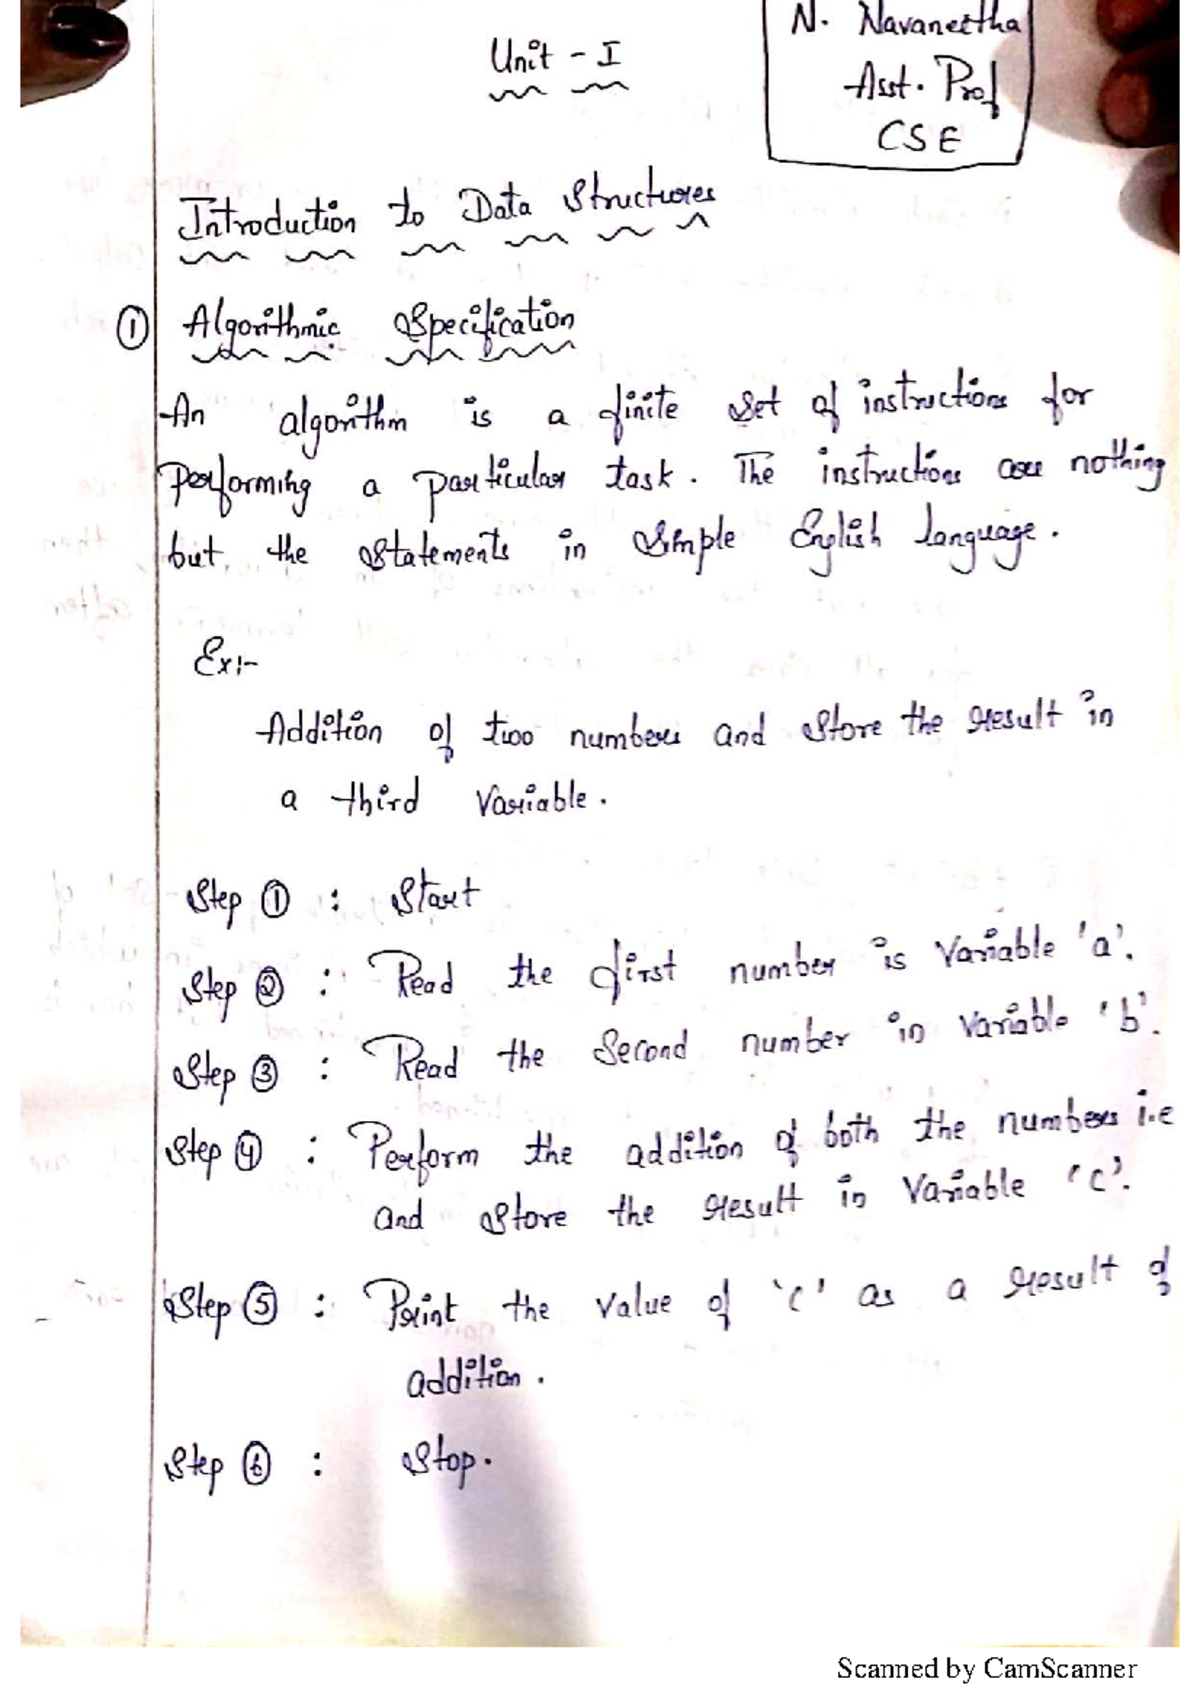 N. Navaneetha
Asst. Prof
CSE
Unit - I
Introduction to Data Structures
① Algorithmic Specification
An algorithm is a finite set of instructions for
performing a particular task. The instructions are nothing
but the statements in simple English language.
Ex:-
Addition of two numbers and store the result in
a third variable.
Step ① : Start
Step ② : Read the first number is variable 'a'.
Step ③ : Read the second number in variable 'b'.
Step ④ : Perform the addition of both the numbers i.e
and store the result in variable 'c'.
Step ⑤ : Print the value of 'c' as a result of
addition.
Step ⑥ : Stop.
Scanned by CamScanner